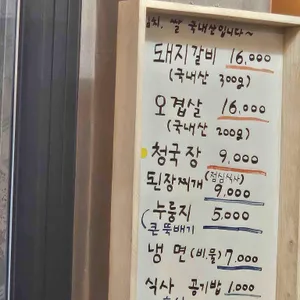 쌀 국내산입니다~
돼지갈비 16,000
(국내산 300g)
오겹살 16,000
(국내산 200g)
청국장 9,000
된장찌개 (점심식사) 9,000
누룽지 5,000
(큰뚝배기
냉면(비,물) 7,000
식사 공기밥 1,000